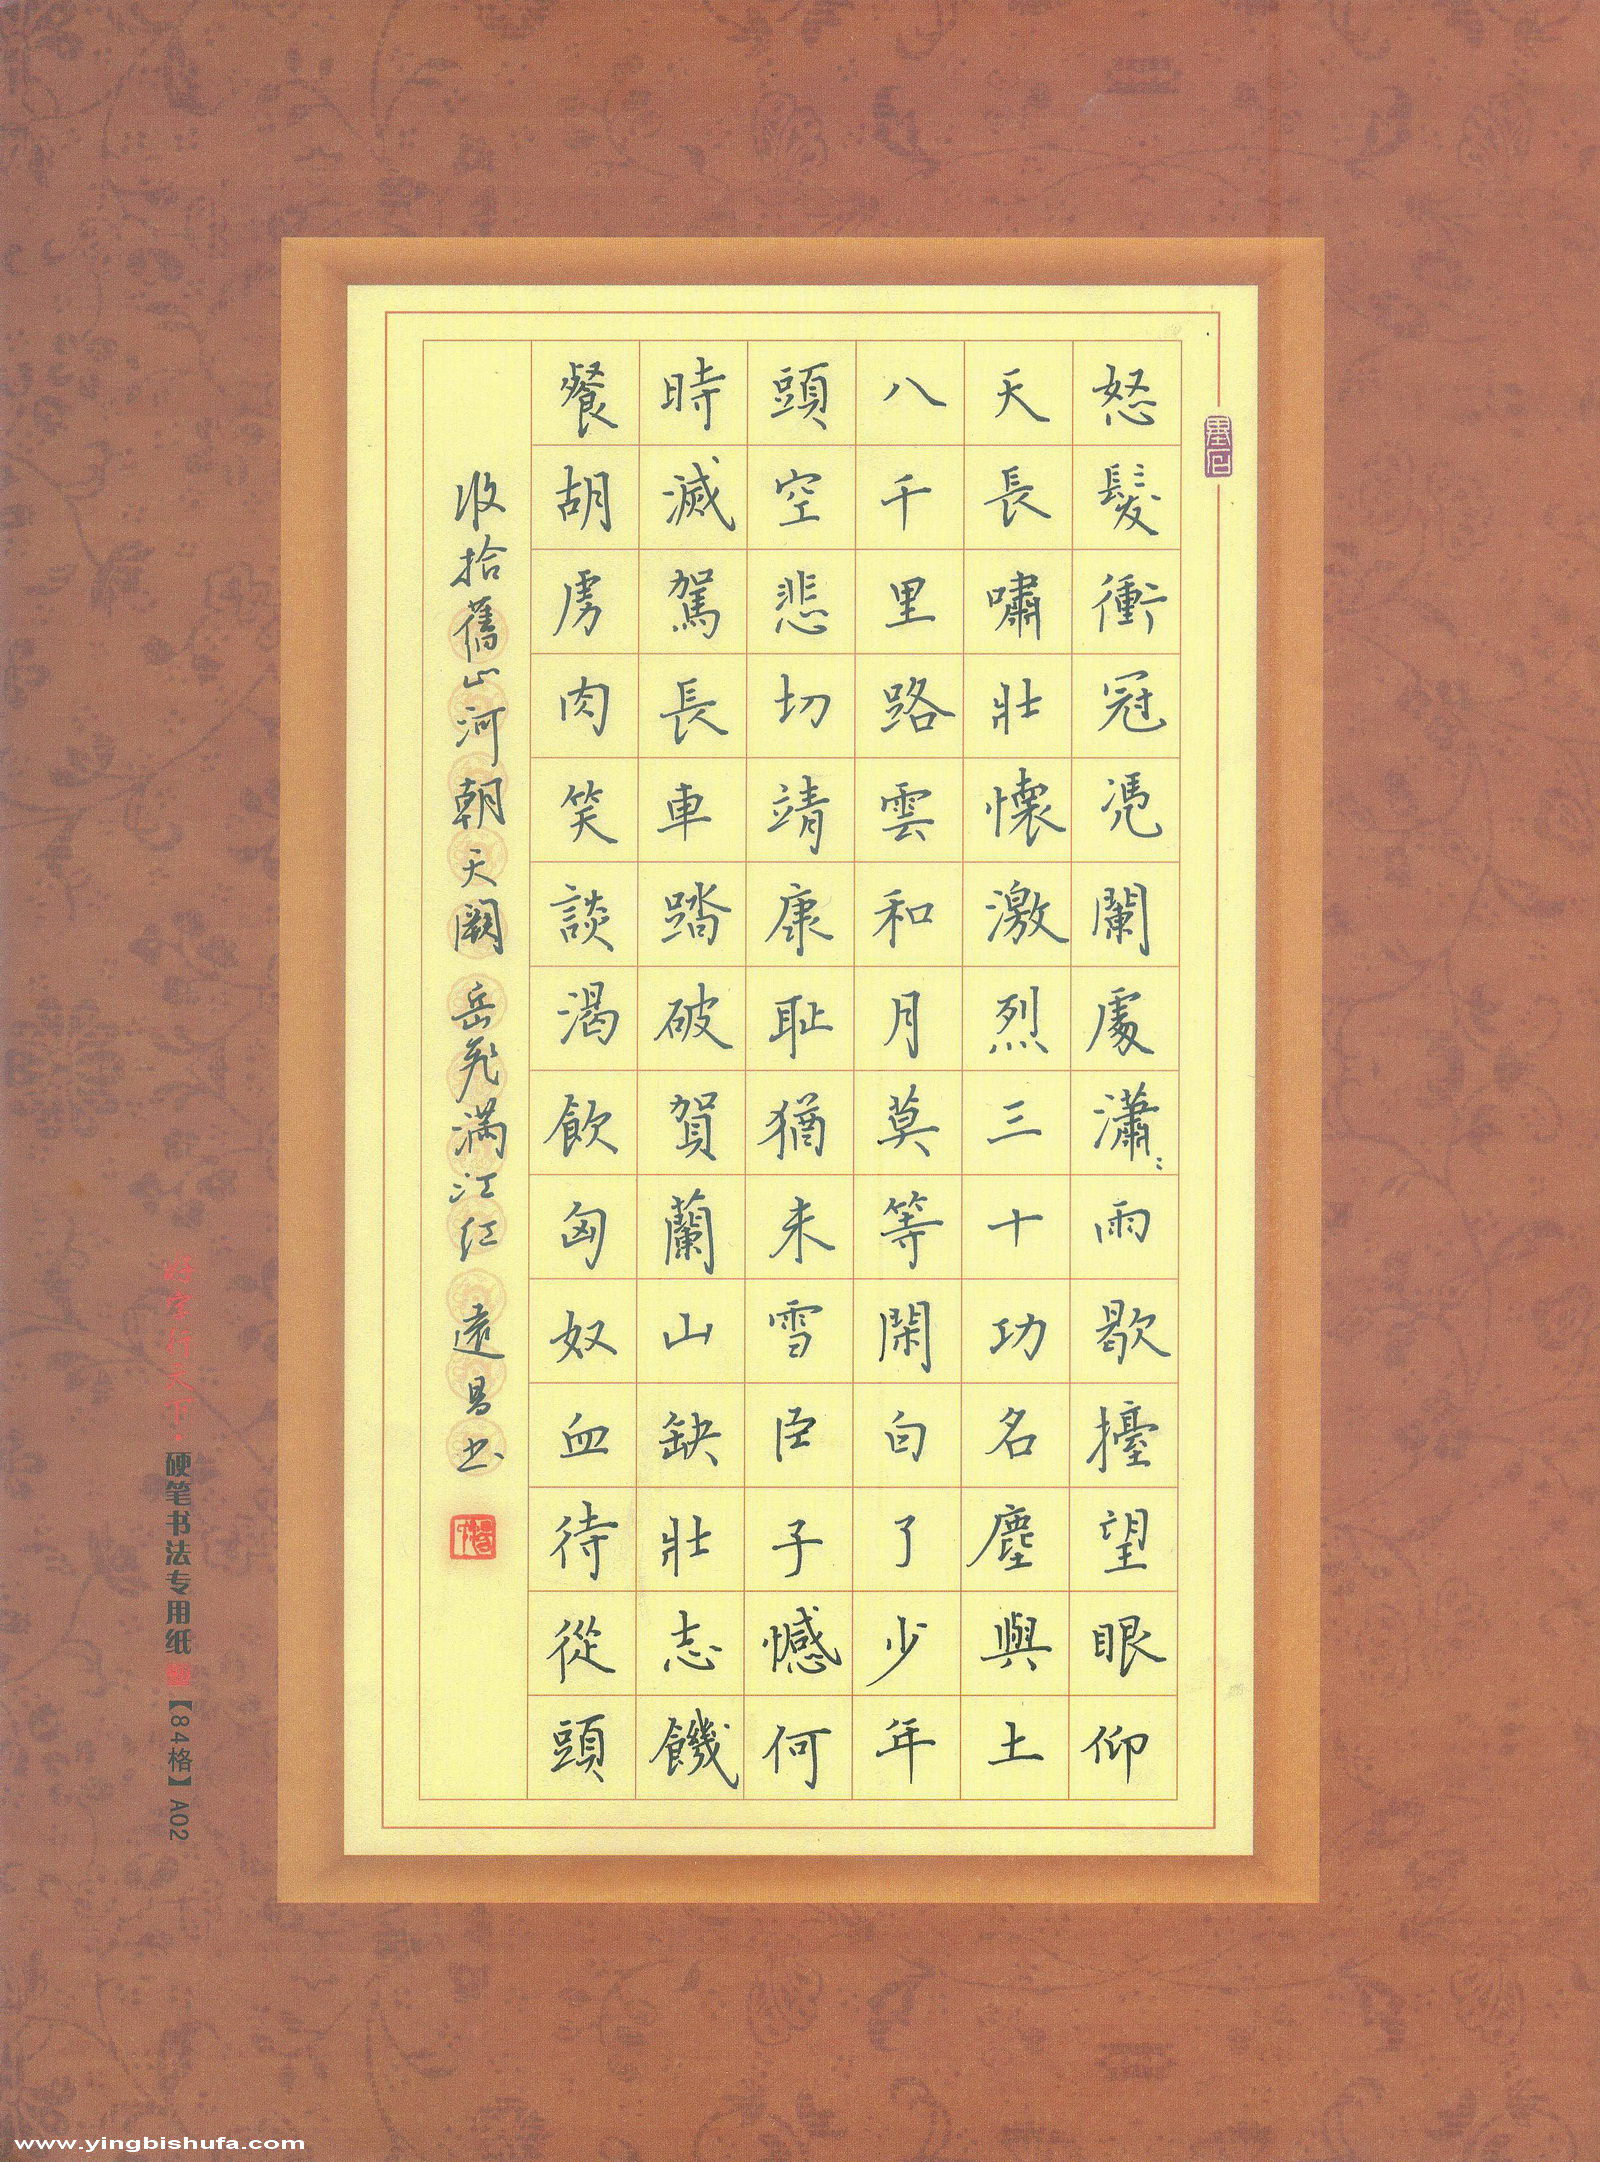 怒髮衝冠憑闌處瀟〻雨歇擡望眼仰
天長嘯壯懷激烈三十功名塵與土
八千里路雲和月莫等閑白了少年
頭空悲切靖康恥猶未雪臣子憾何
時滅駕長車踏破賀蘭山缺壯志饑
餐胡虜肉笑談渴飲匈奴血待從頭
收拾舊山河朝天闕 岳飛滿江紅 遠昌书
好字行天下·硬笔书法专用纸【84格】A02
www.yingbishufa.com